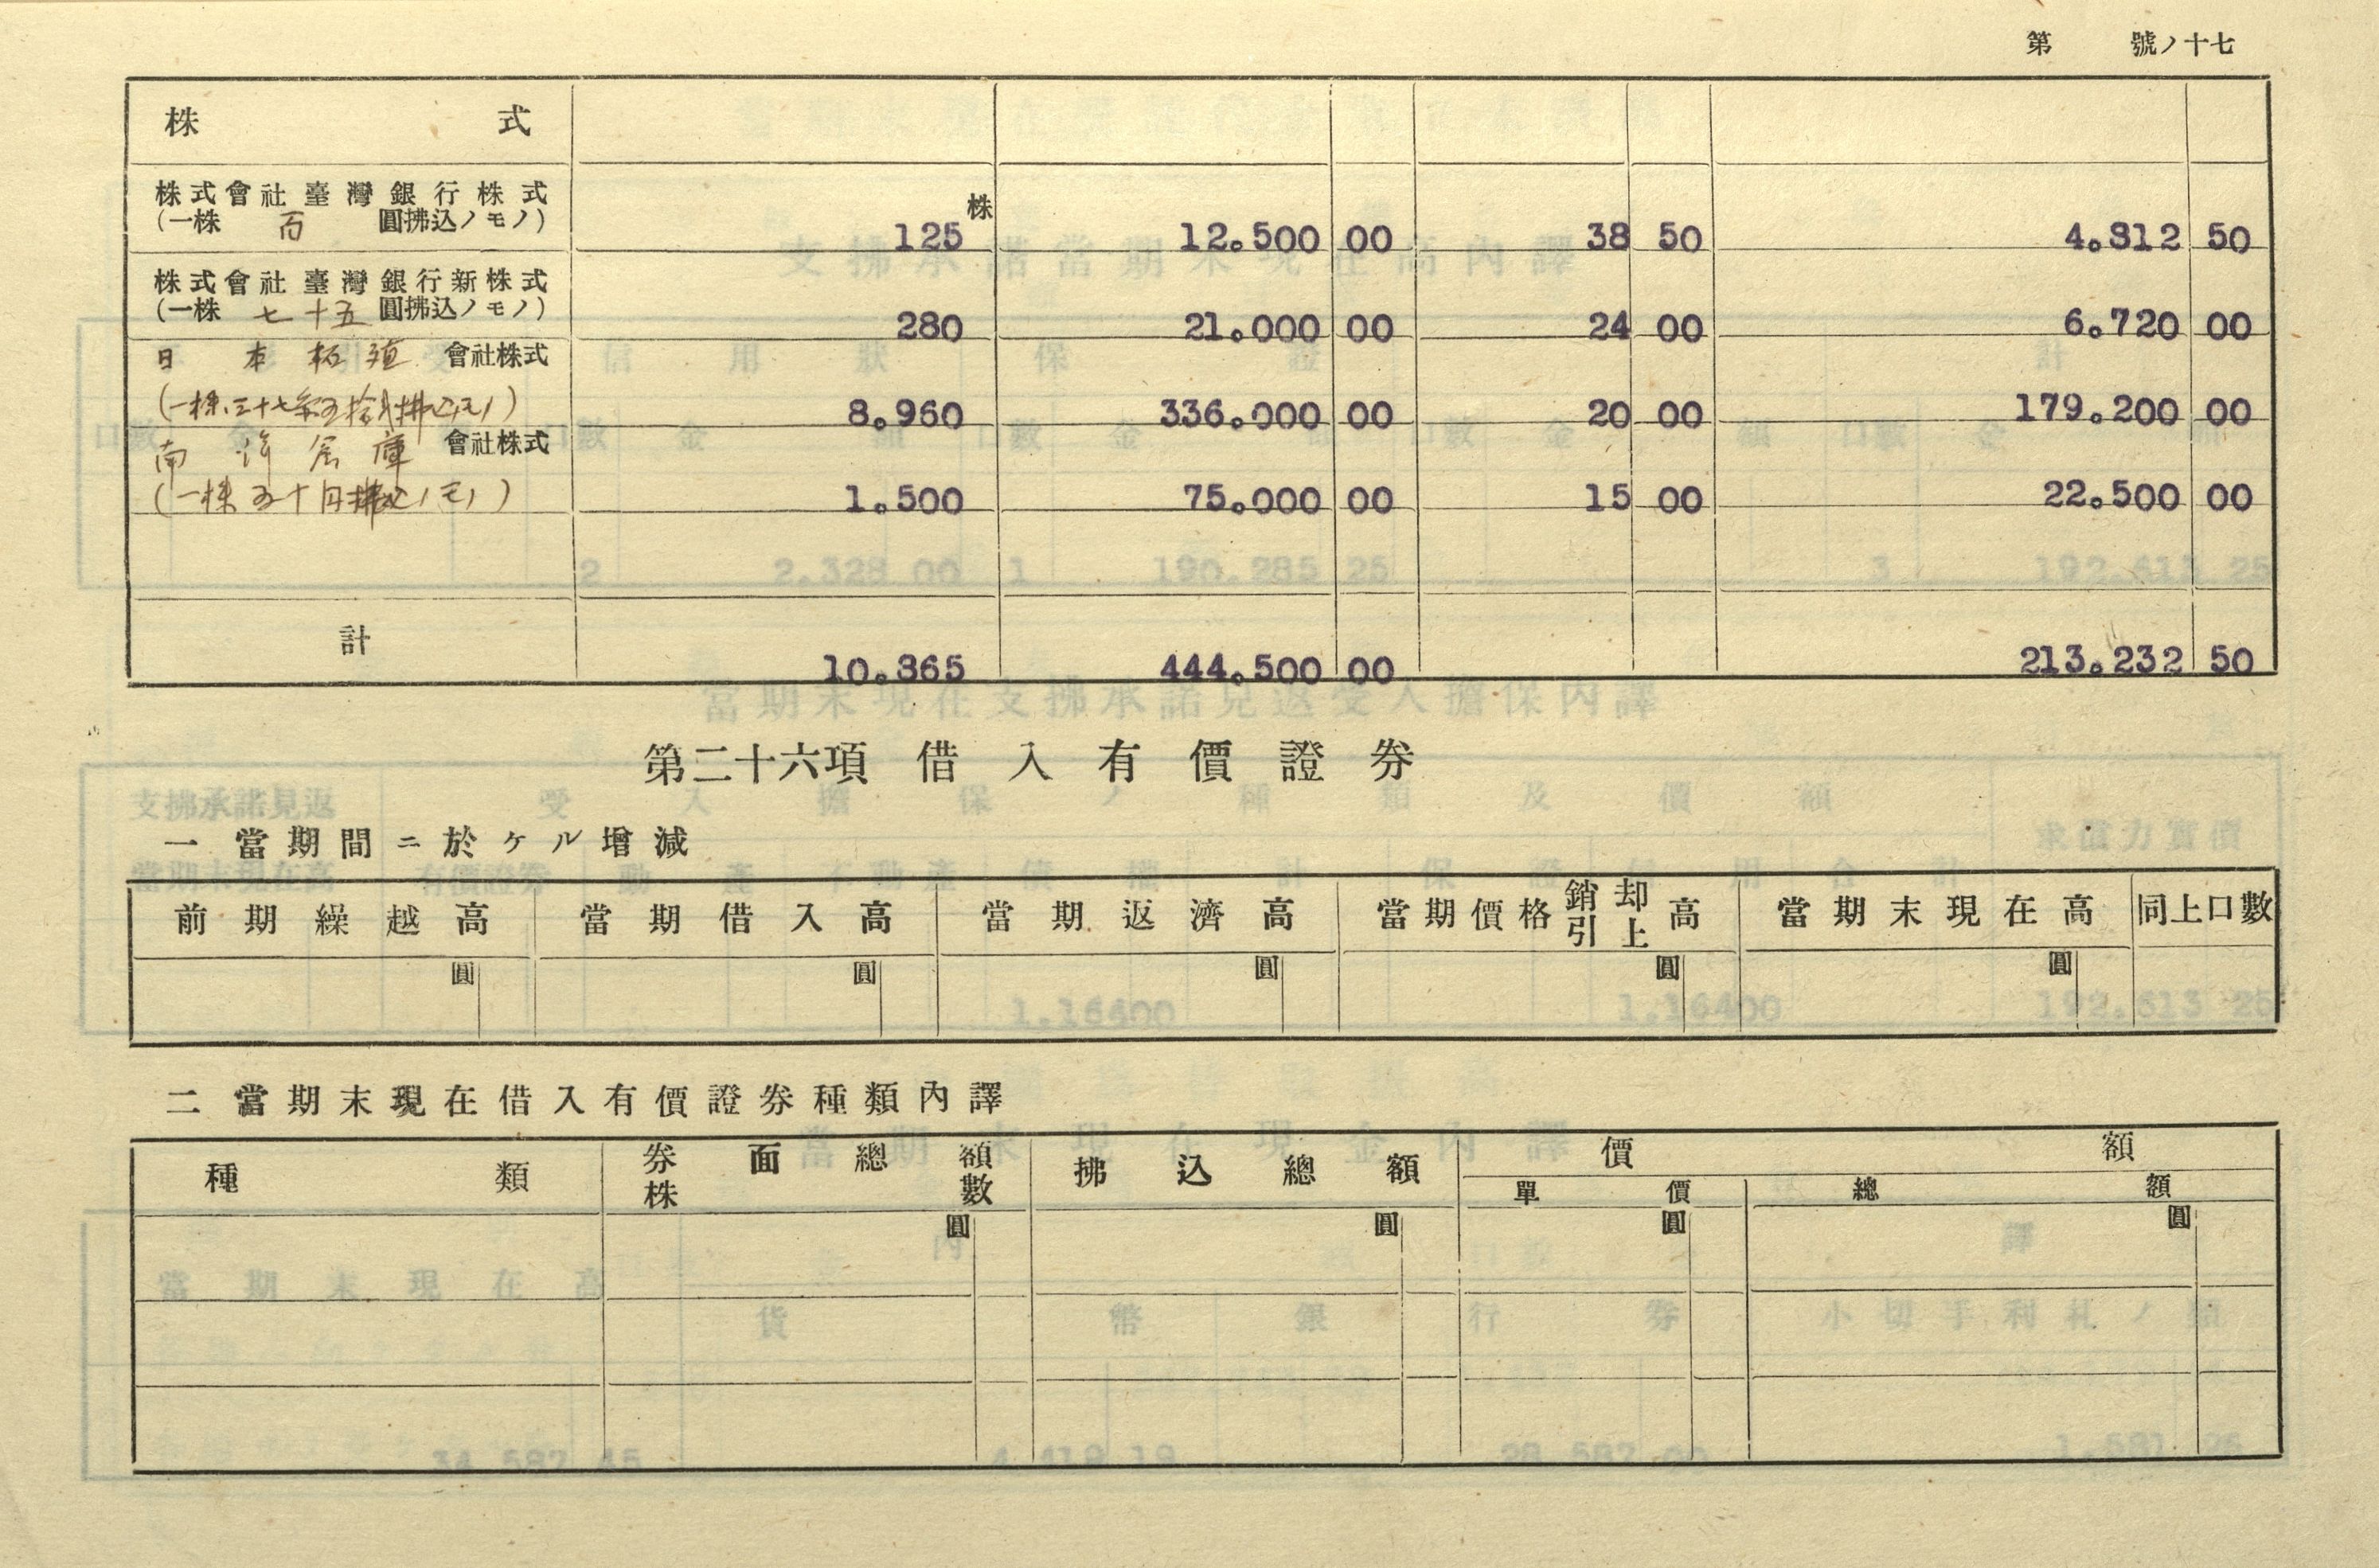 第 號ノ十七
株 式
株式會社臺灣銀行株式
(一株 百 圓拂込ノモノ) 125 株 12.500 00 38 50 4.812 50
株式會社臺灣銀行新株式
(一株 七十五 圓拂込ノモノ) 280 21.000 00 24 00 6.720 00
日本拓殖 會社株式
(一株三十七 五拾 拂込ノモノ) 8.960 336.000 00 20 00 179.200 00
南洋倉庫 會社株式
(一株五十円拂込ノモノ) 1.500 75.000 00 15 00 22.500 00
計 10.865 444.500 00 213.232 50
第二十六項 借入有價證券
一 當期間ニ於ケル增減
前期繰越高 當期借入高 當期返濟高 當期價格銷却引上高 當期末現在高 同上口數
圓 圓 圓 圓 圓
二 當期末現在借入有價證券種類內譯
種類 券面總額 株數 拂込總額 價額
單價 總額
圓 圓 圓 圓